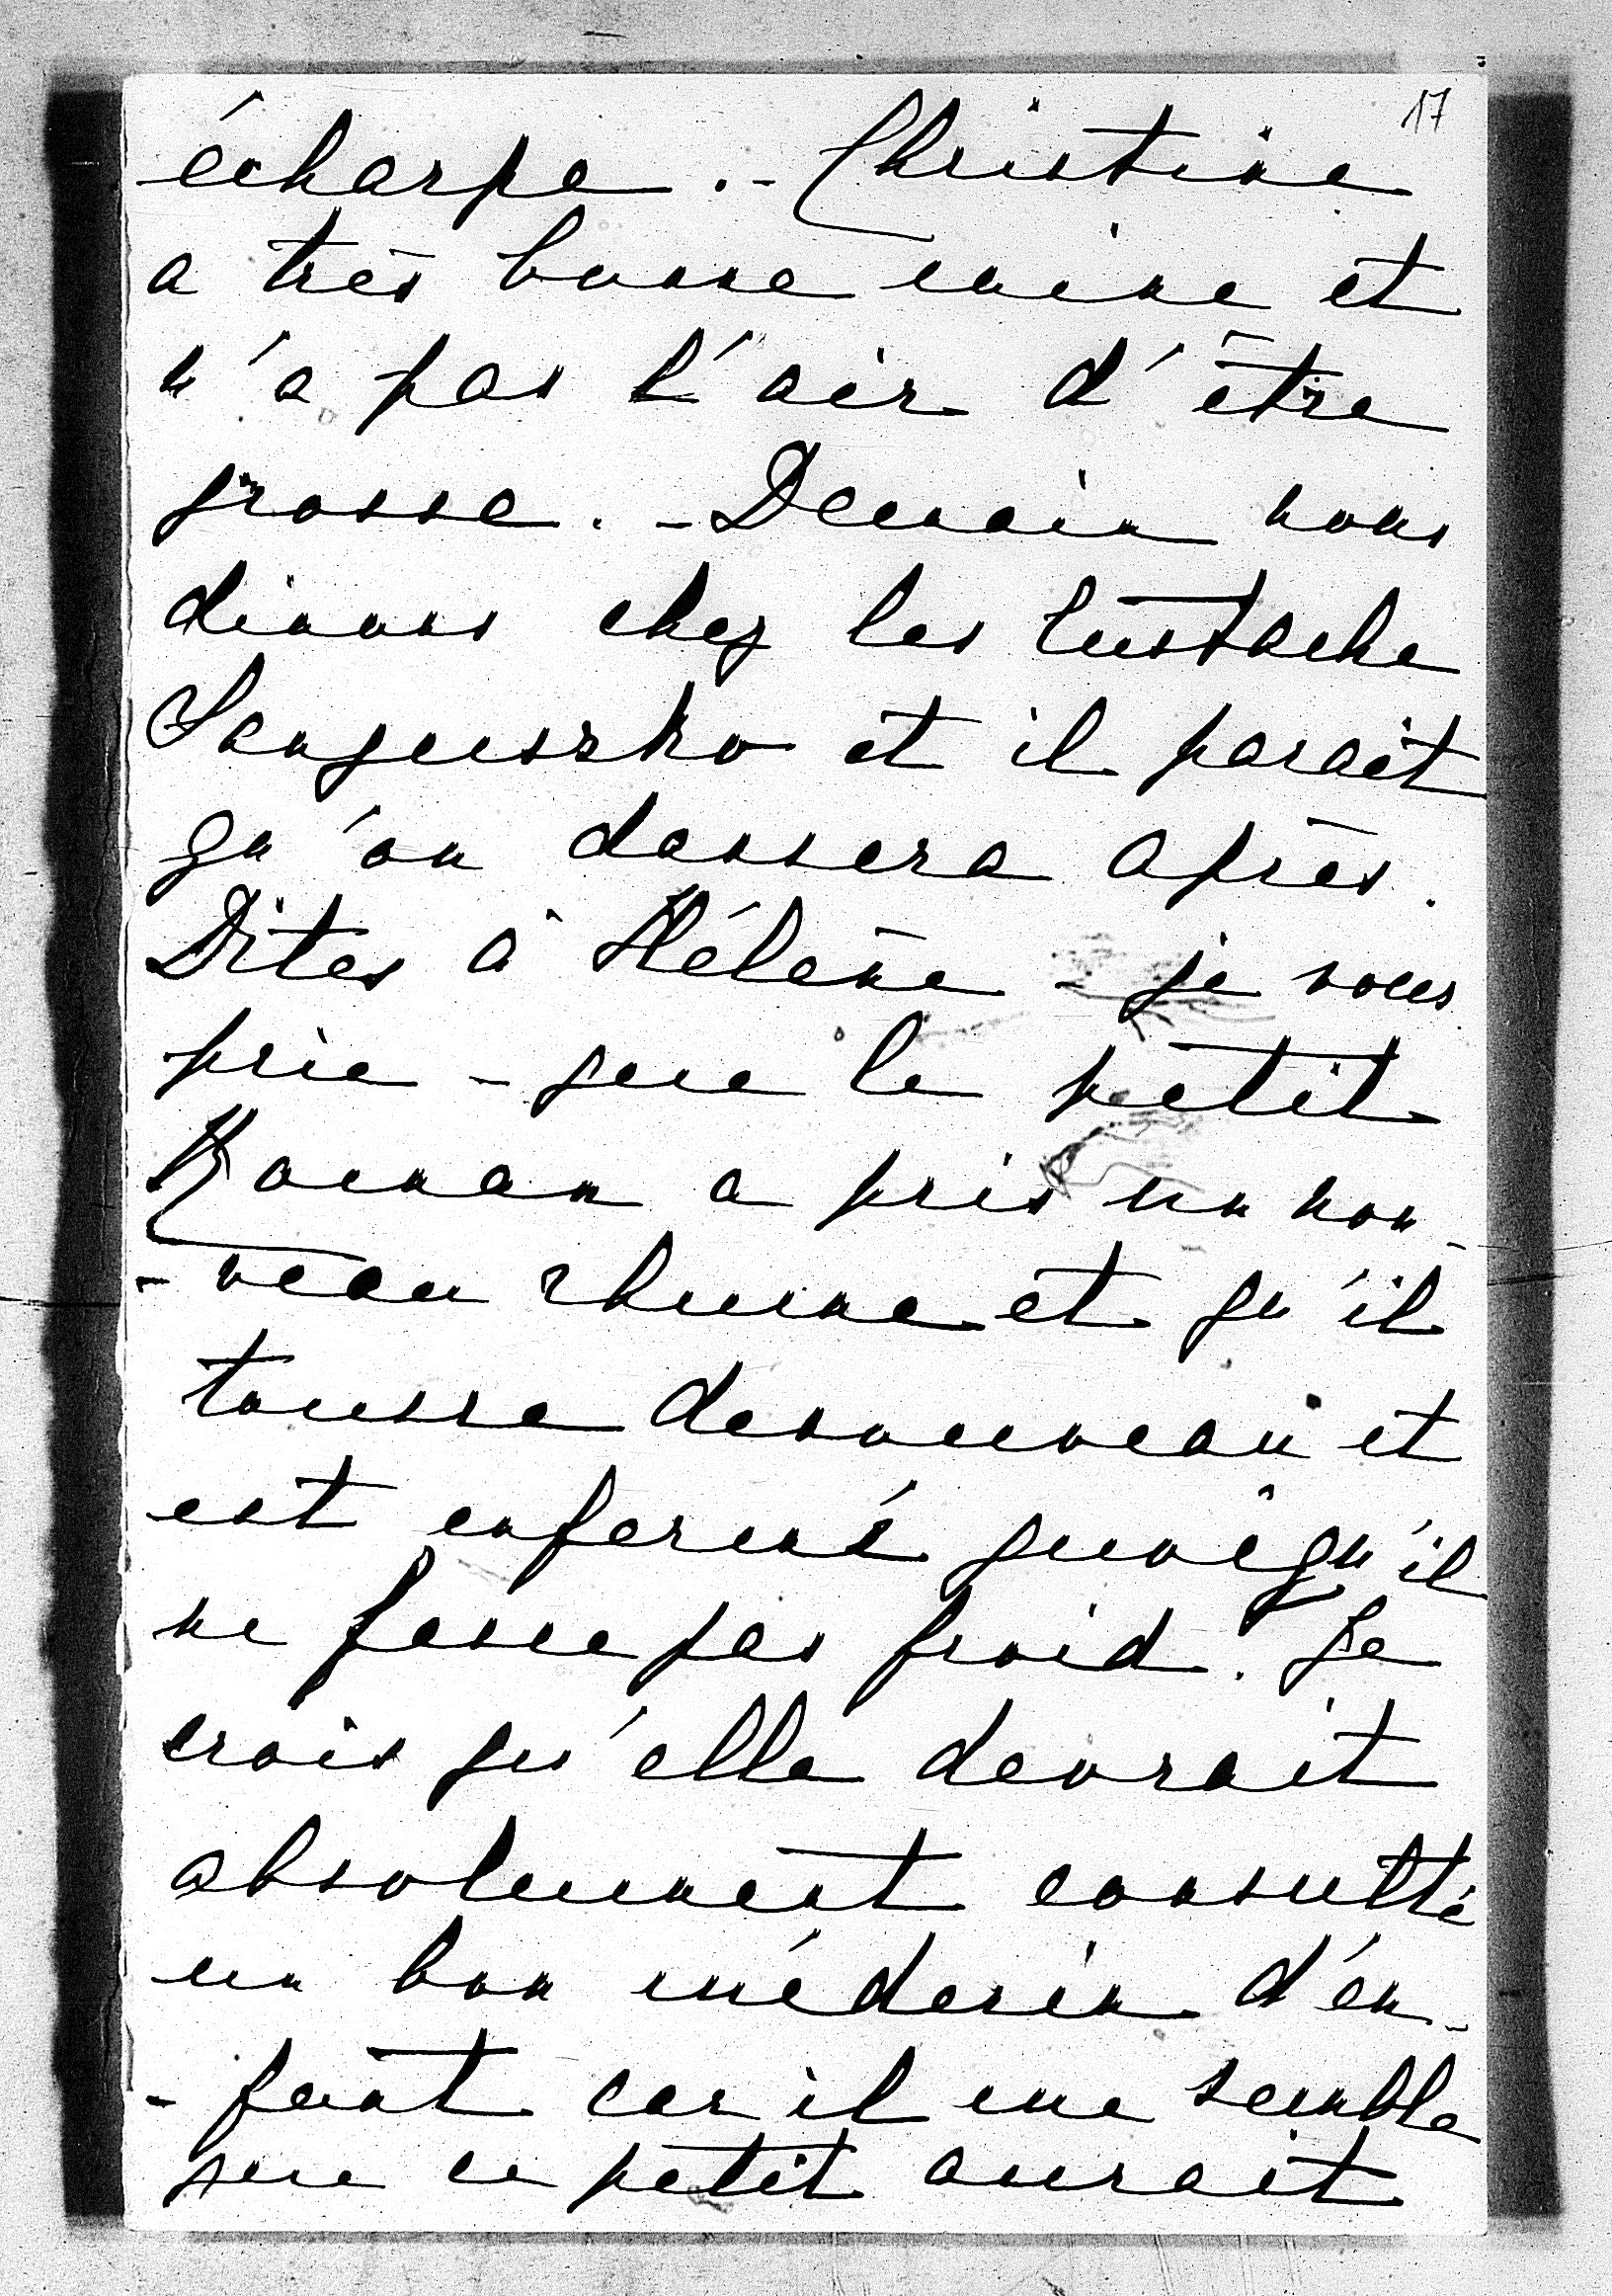 17
écharpe. - Christine
a très bonne mine et
n'a pas l'air d'être
grosse. - Demain nous
dinons chez les Eustache
Sanguszko et il parait
qu'on dansera après.
Dites à Hélène - je vous
prie - que le petit
Roman a pris un nou-
-veau rhume et qu'il
tousse denouveau et
est enfermé quoiqu'il
ne fasse pas froid. Je
crois qu'elle devrait
absolument consulté
un bon médecin d'en-
-fant car il me semble
que ce petit aurait